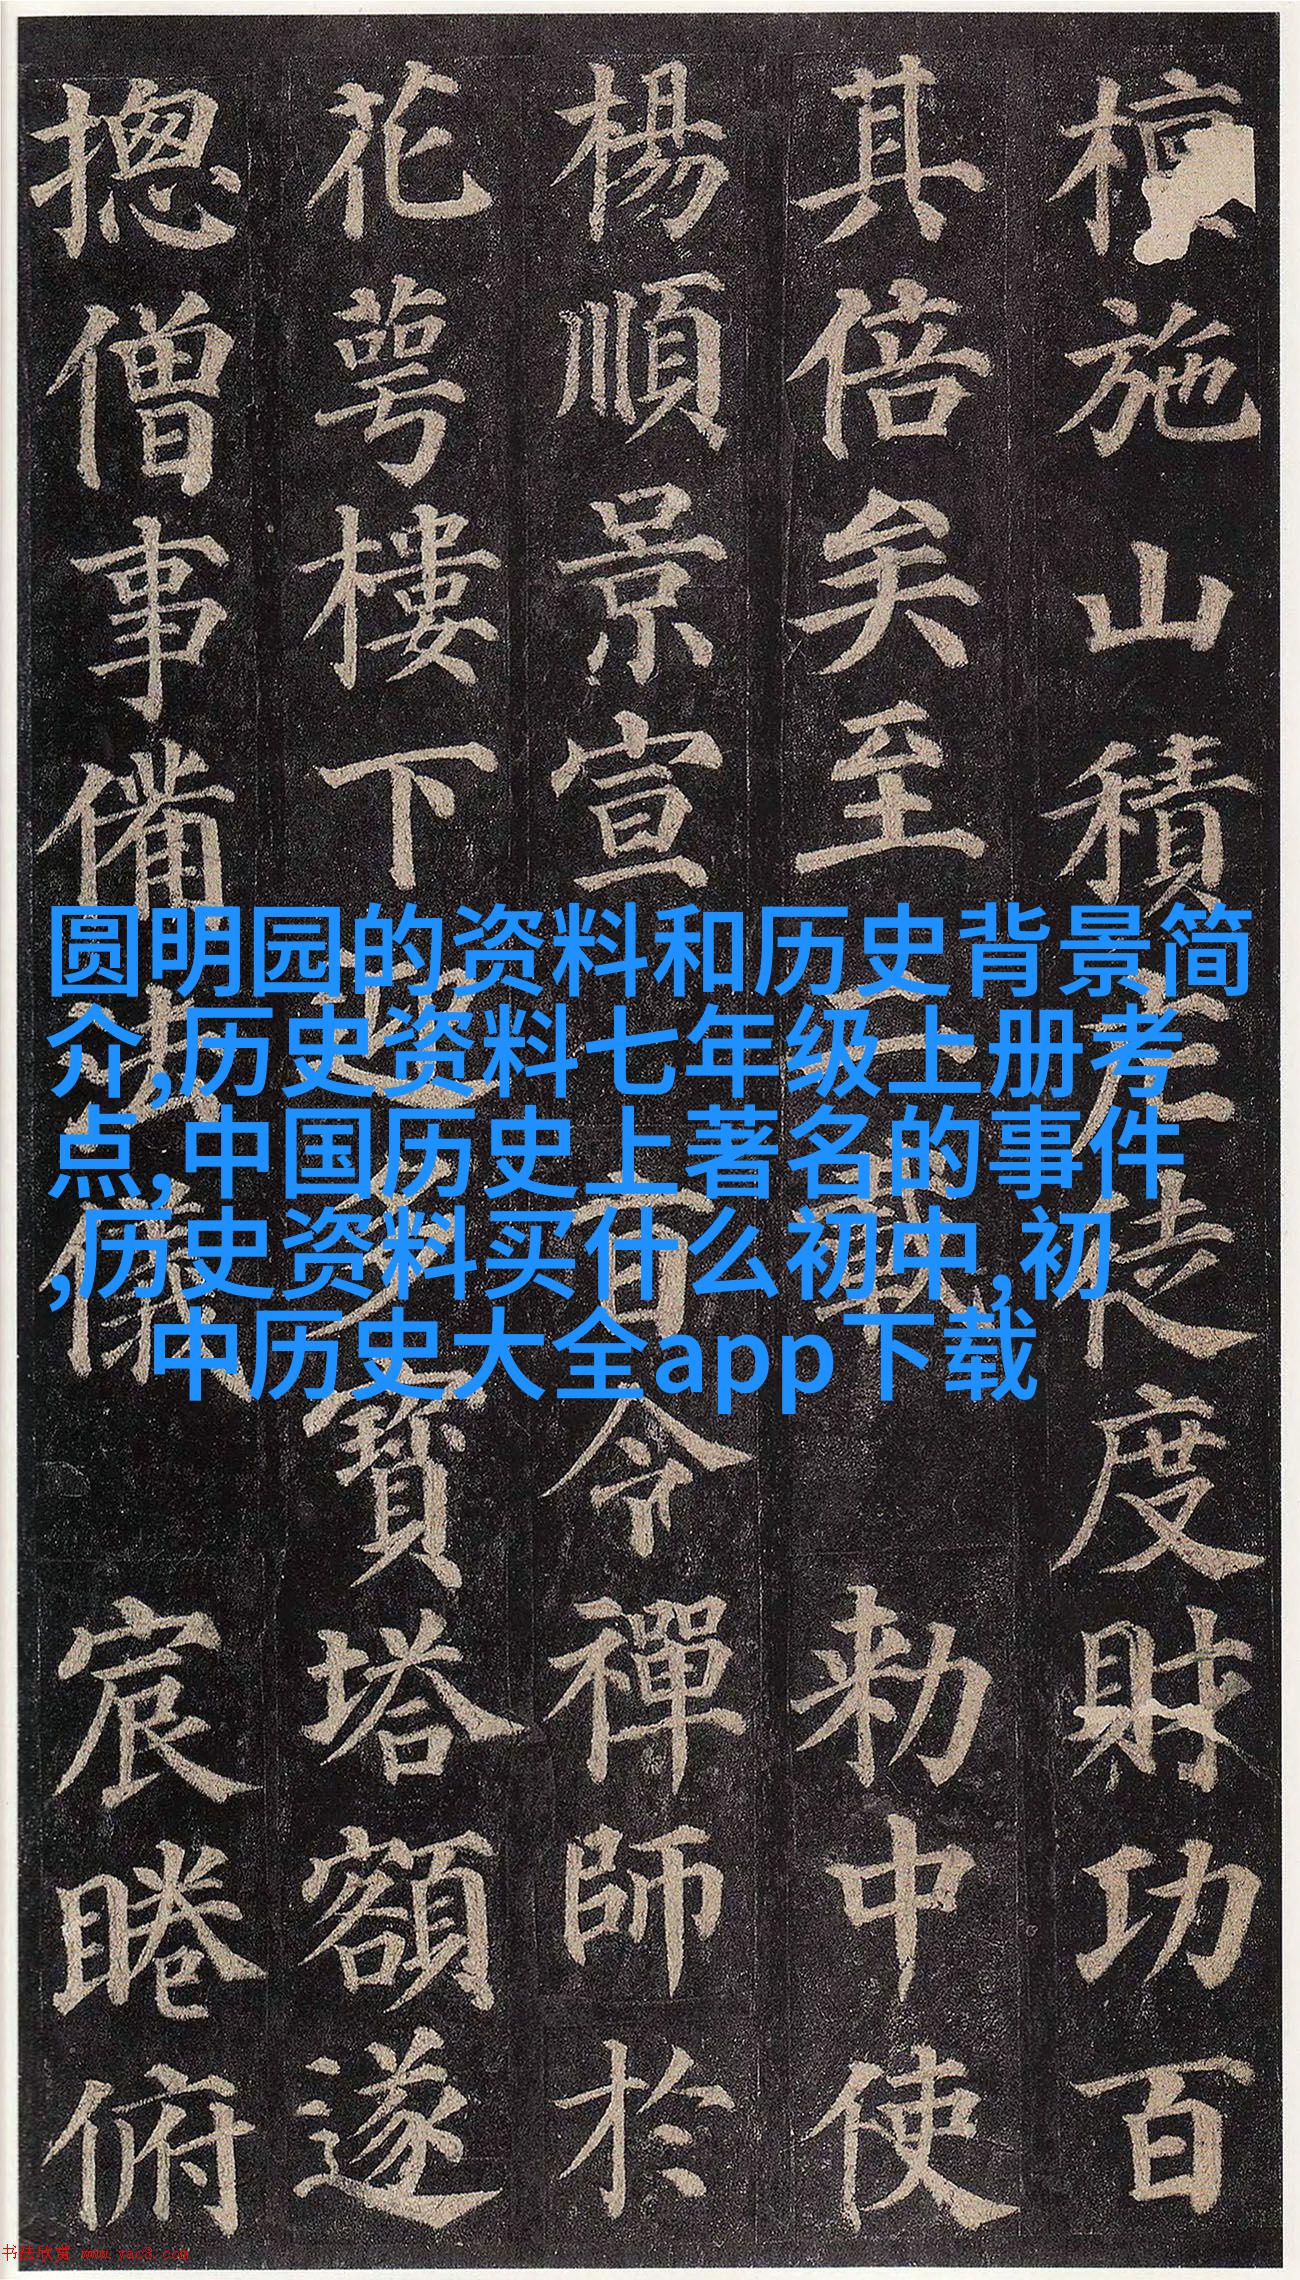 檀施山積庀徒度財功百
其倍矣至二載勅中使
楊順景宣旨令禪師於
花萼樓下迎多寶塔額遂
揔僧事備法儀宸睠俯
圆明园的资料和历史背景简
介,历史资料七年级上册考
点,中国历史上著名的事件
,历史资料买什么初中,初
中历史大全app下载
书法欣赏 www.yac8.com